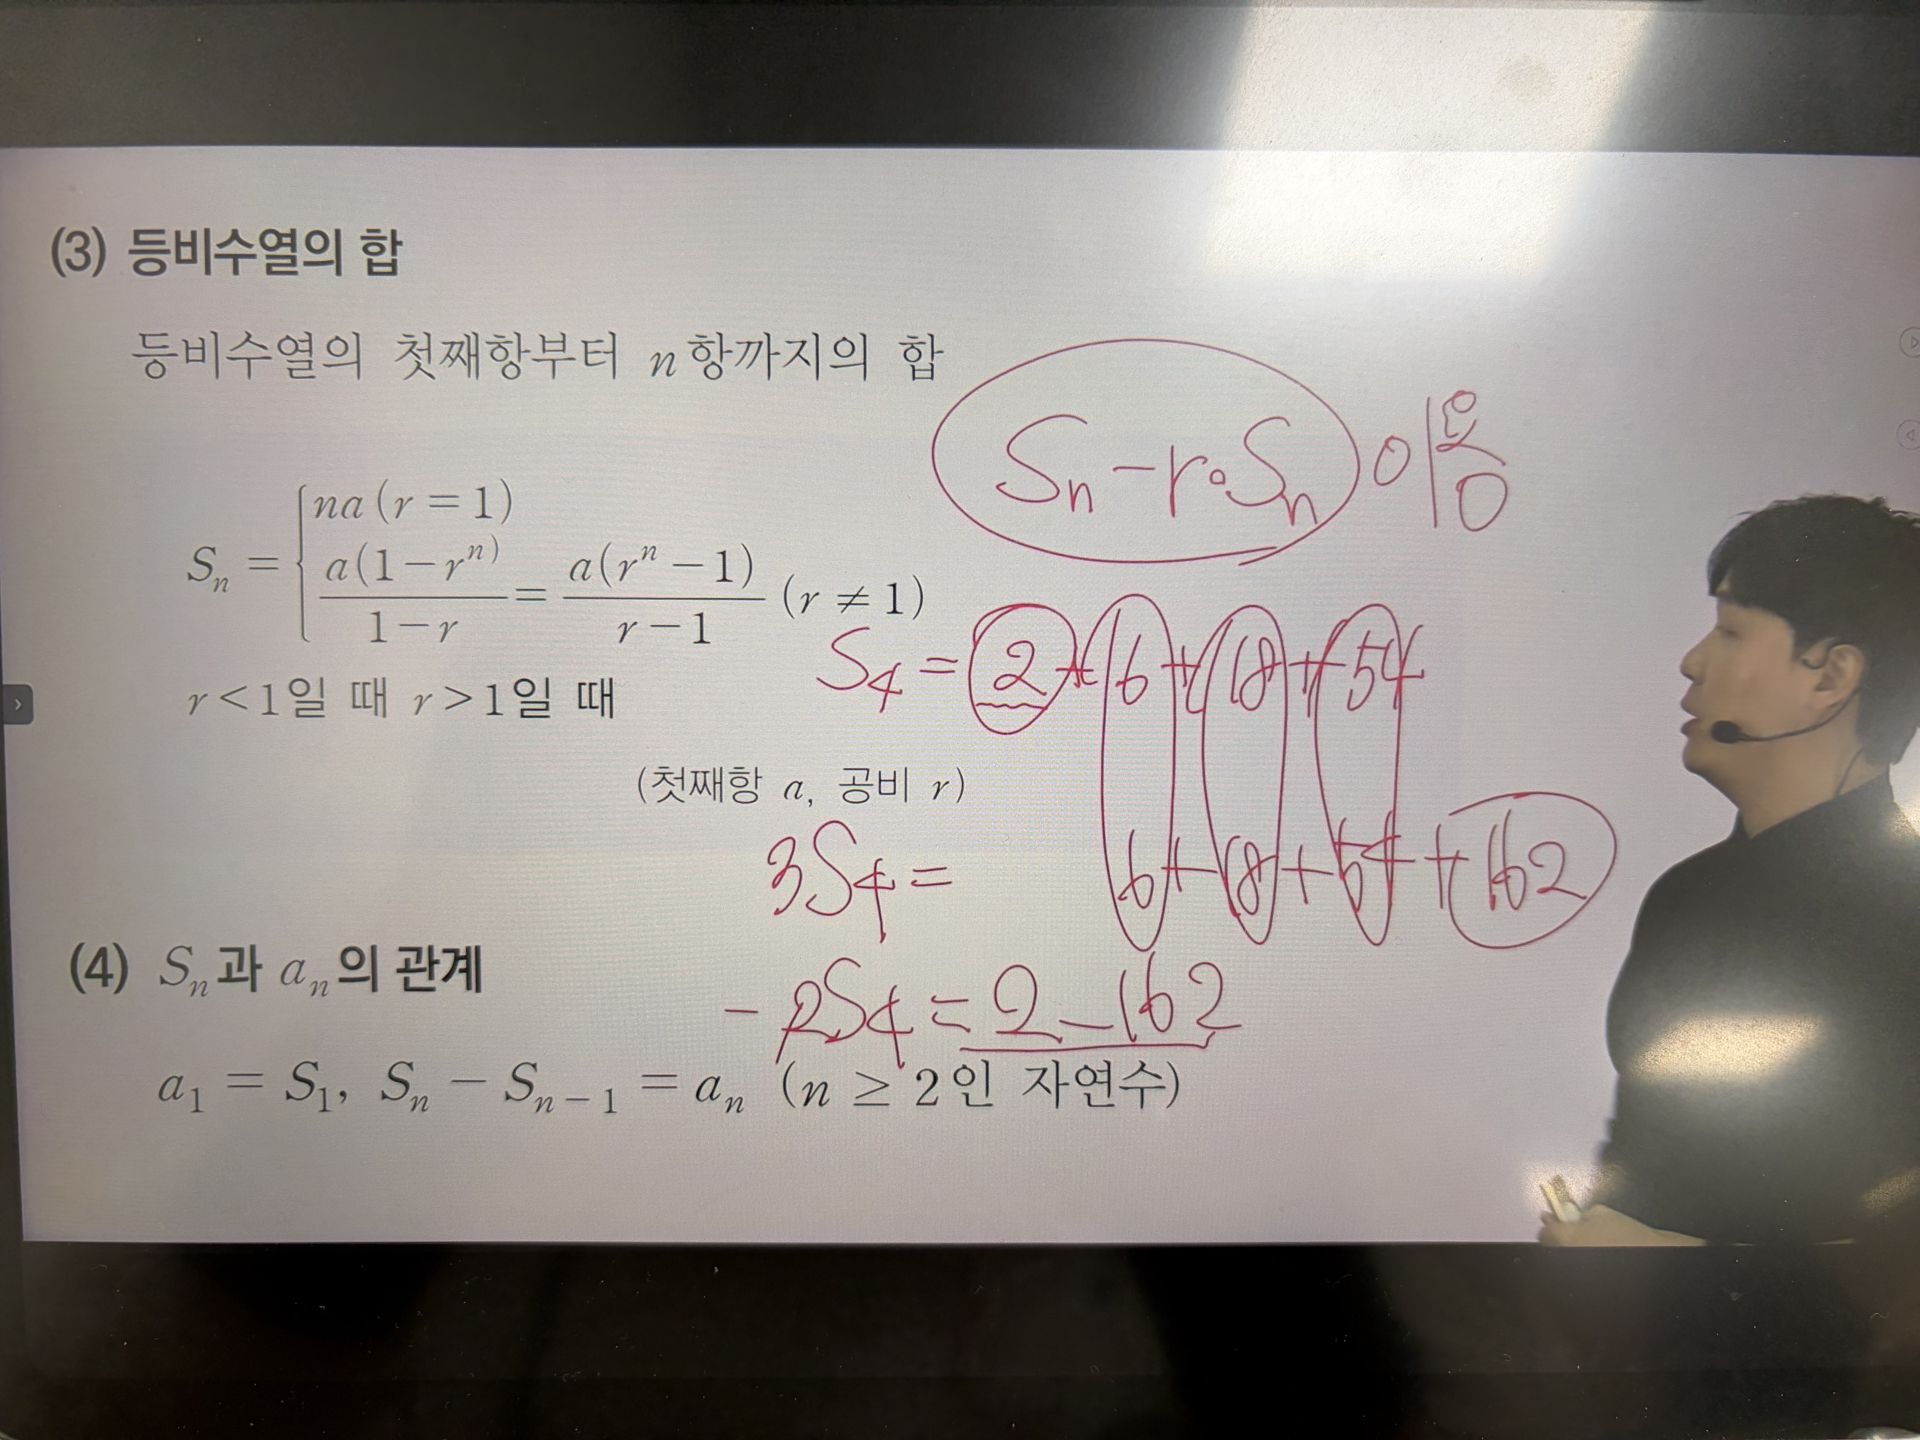 (3) 등비수열의 합
등비수열의 첫째항부터 n항까지의 합
Sₙ - r·Sₙ 이용
Sₙ = { na (r = 1)
a(1-rⁿ)/(1-r) = a(rⁿ-1)/(r-1) (r ≠ 1)
S₄ = 2+6+18+54
r<1일 때 r>1일 때
(첫째항 a, 공비 r)
3S₄ = 6+18+54+162
-2S₄ = 2-162
(4) Sₙ과 aₙ의 관계
a₁ = S₁, Sₙ - Sₙ₋₁ = aₙ (n ≥ 2인 자연수)